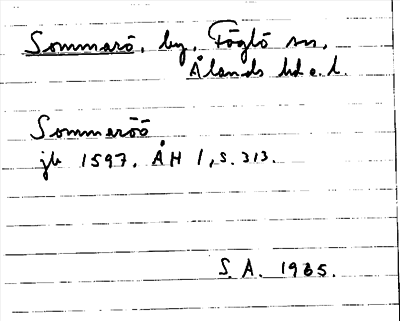 Sommarö, by, Föglö sn,
Ålands hd o. l.
Sommeröö
jb 1597. ÅH 1, s. 313.
S. A. 1935.